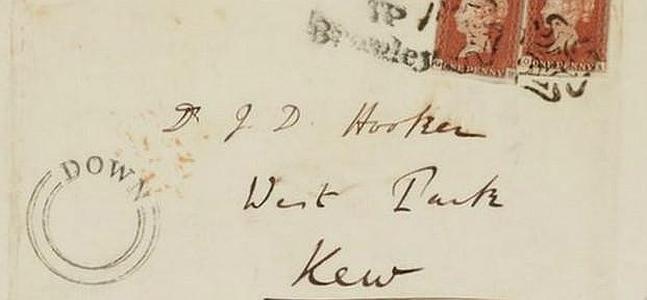 TP
Bromley
ONE PENNY
ONE PENNY
Dr J D. Hooker
West Park
Kew
DOWN